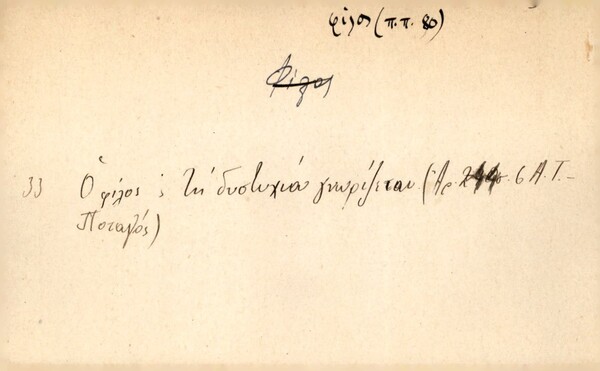 φίλος (π.π. 80)
Φίλος
33 Ὁ φίλος ς τὴ δυστυχιὰ γνωρίζεται (Ἀρ. 6 Α.Τ.-
Ποταμός)